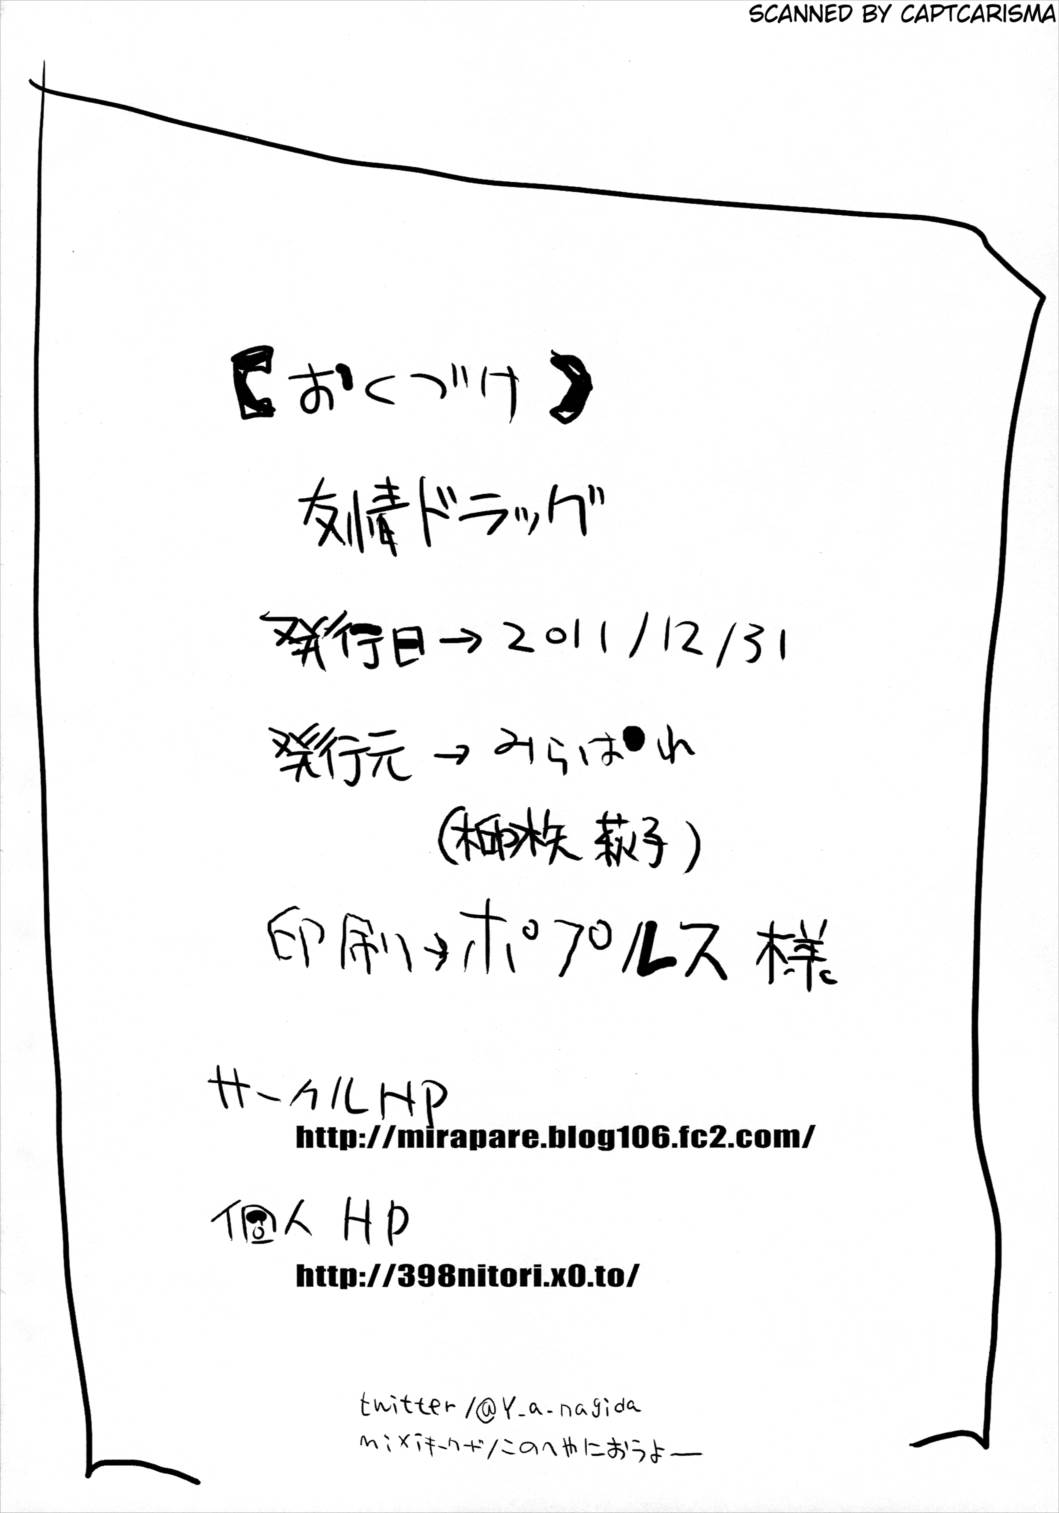 SCANNED BY CAPTCARISMA
【おくづけ】
友情ドラッグ
発行日→2011/12/31
発行元→みらぱれ
(柳 萩子)
印刷→ポプルス様
サークルHP
http://mirapare.blog106.fc2.com/
個人HP
http://398nitori.x0.to/
twitter/@Y_a_nagida
mixiキーワード/このへやにおうよー